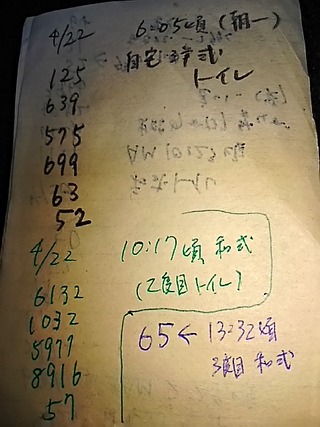 4/22 6:05頃(朝一)
自宅 洋式
トイレ
125
639
575
699
63
52
4/22 10:17頃 和式
(2度目トイレ)
6132
1032
5977
8916
57
65 ← 13:32頃
3度目 和式